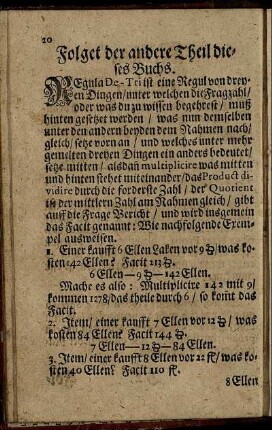 20
Folget der andere Theil die-
ses Buchs.
REgula De-Tri ist eine Regul von drey-
en Dingen/ unter welchen die Fragzahl/
oder was du zu wissen begehrest/ muß
hinten gesetzet werden/ was nun demselben
unter den andern beyden dem Nahmen nach/
gleich/ setze vorn an/ und welches unter mehr
gemelten dreyen Dingen ein anders bedeutet/
setze mitten/ alsdañ multiplicire was mitten
und hinten stehet miteinander/ das Product di-
vidire durch die forderste Zahl/ der Quotient
ist der mittlern Zahl am Nahmen gleich/ gibt
auff die Frage Bericht/ und wird insgemein
das Facit genannt: Wie nachfolgende Exem-
pel ausweisen.
1. Einer kaufft 6 Ellen Laken vor 9 ₰/ was ko-
sten 142 Ellen? Facit 213 ₰.
6 Ellen — 9 ₰ — 142 Ellen.
Mache es also: Multiplicire 142 mit 9/
kommen 1278/ das theile durch 6/ so komt das
Facit.
2. Item/ einer kaufft 7 Ellen vor 12 ₰/ was
kosten 84 Ellen? Facit 144 ₰.
7 Ellen — 12 ₰ — 84 Ellen.
3. Item/ einer kaufft 8 Ellen vor 22 fl/ was ko-
sten 40 Ellen? Facit 110 fl.
8 Ellen